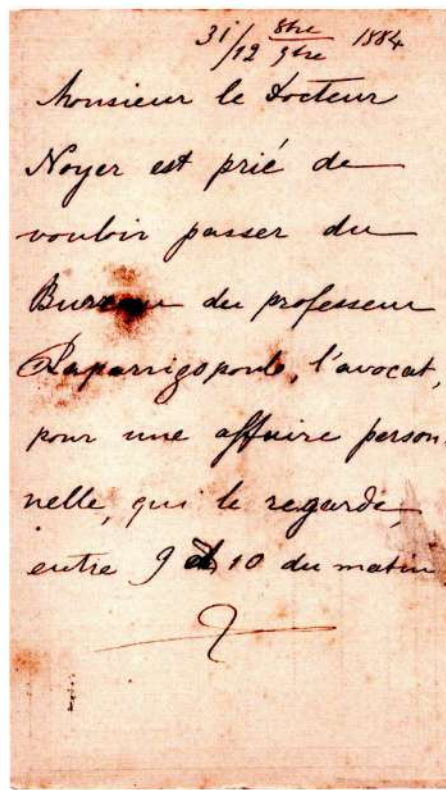 31/12 8bre/9bre 1884
Monsieur le Docteur
Noyer est prié de
vouloir passer du
Bureau du professeur
Paparrigopoulo, l'avocat,
pour une affaire person
nelle, qui le regarde,
entre 9 et 10 du matin